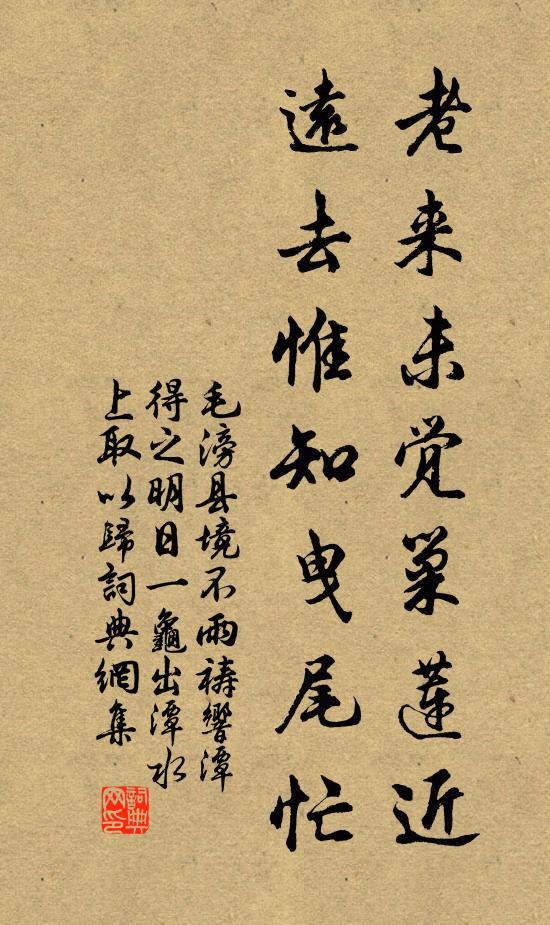 老来未觉巢莲近
遠去惟知曳尾忙
毛滂县境不雨祷響潭
得之明日一龜出潭水
上取以歸詞典網集
詞典
网印